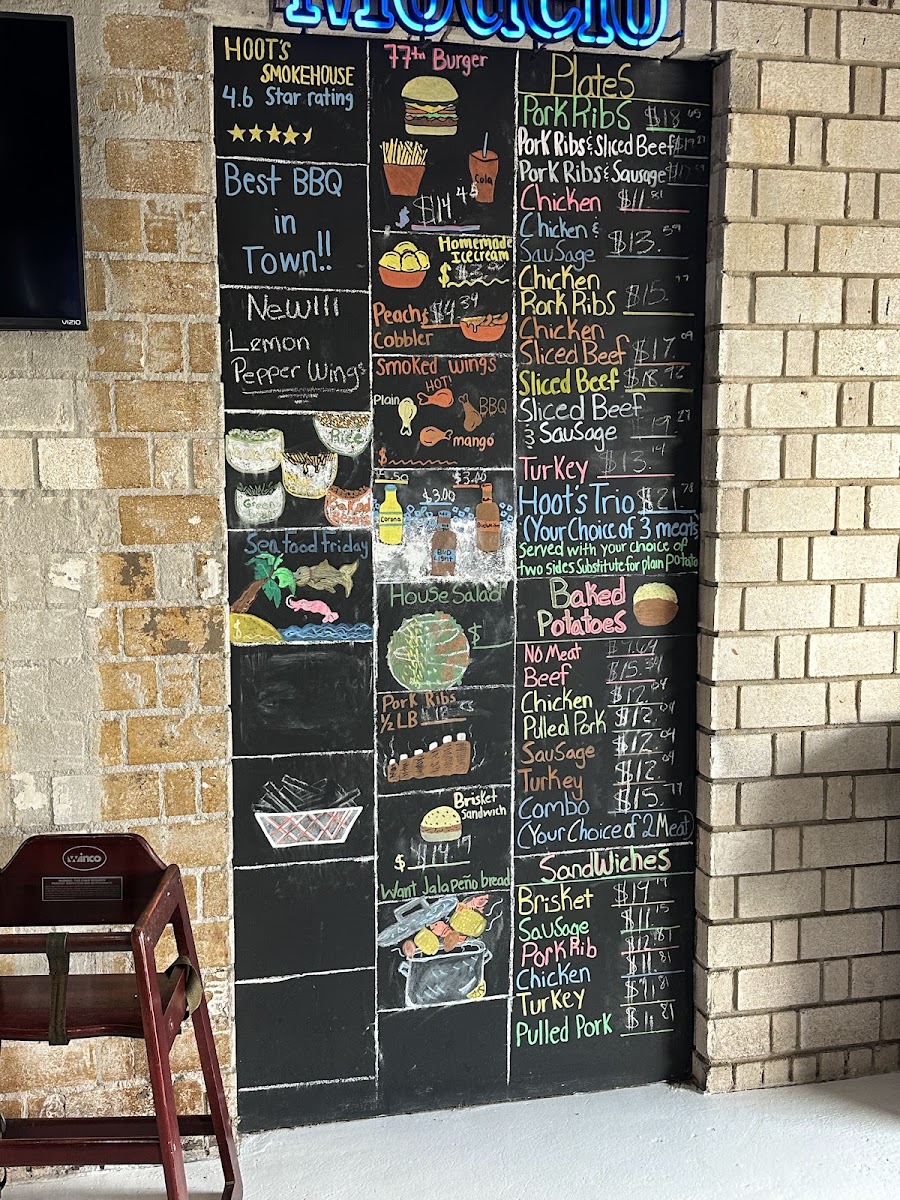 Modelo
VIZIO
HOOT'S
SMOKEHOUSE
4.6 Star rating
Best BBQ
in
Town!!
New!!!
Lemon
Pepper Wings
Rice
Green
Baked
Seafood Friday
77th Burger
Cola
$ $14.45
Homemade
Icecream
Peach
Cobbler
$4.34
Smoked wings
HOT!
Plain
BBQ
mango
$
$3.00
$3.00
Corona
Bud
Light
Budweiser
House Salad
$
Pork Ribs
½ LB
Brisket
Sandwich
$ $14.19
Want Jalapeño bread
Plates
Pork Ribs $18
Pork Ribs & Sliced Beef
Pork Ribs & Sausage
Chicken $11.81
Chicken &
Sausage $13.59
Chicken
Pork Ribs $15.
Chicken
Sliced Beef $17.09
Sliced Beef $18.
Sliced Beef
& Sausage
Turkey $13.14
Hoot's Trio $21.78
(Your Choice of 3 meats)
Served with your choice of
two sides Substitute for plain potato
Baked
Potatoes
No Meat $7.69
Beef $15.34
Chicken $12.04
Pulled Pork $12.04
Sausage $12.04
Turkey $12.04
Combo $15.77
(Your Choice of 2 Meat)
Sandwiches
Brisket $14.19
Sausage $11.15
Pork Rib $12.81
Chicken $11.81
Turkey $11.81
Pulled Pork $11.81
winco